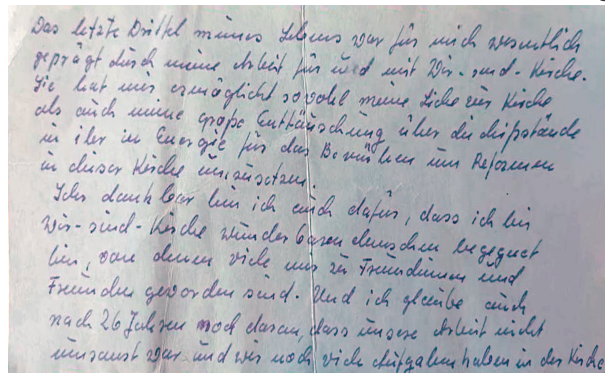 Das letzte Drittel meines Lebens war für mich wesentlich
geprägt durch meine Arbeit für und mit Wir-sind-Kirche.
Sie hat mir ermöglicht sowohl meine Liebe zur Kirche
als auch meine große Enttäuschung über die Mißstände
in ihr in Energie für das Bemühen um Reformen
in dieser Kirche umzusetzen.
Sehr dankbar bin ich auch dafür, dass ich bei
Wir-sind-Kirche wunderbaren Menschen begegnet
bin, von denen viele mir zu Freundinnen und
Freunden geworden sind. Und ich glaube auch
nach 26 Jahren noch daran, dass unsere Arbeit nicht
umsonst war und wir noch viele Aufgaben haben in der Kirche